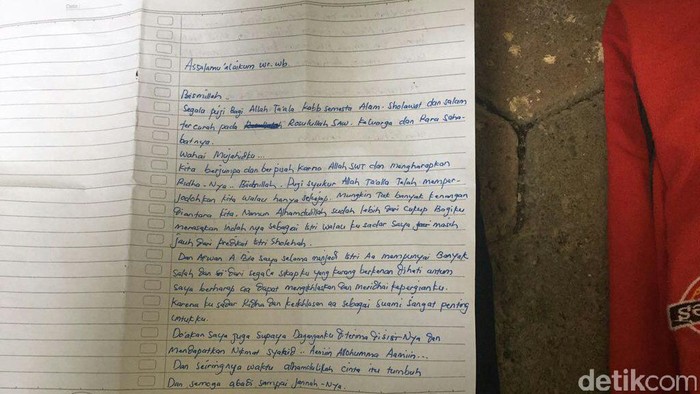 Assalamu'alaikum wr. wb.
Bismillah..
Segala puji Bagi Allah Ta'ala Robb semesta Alam. Sholawat dan salam
tercurah pada Rosulullah SAW. Keluarga dan Para Saha-
batnya.
Wahai Mujahidku...
Kita berjumpa dan berpisah karna Allah SWT dan mengharapkan
Ridho-Nya.. Biidznillah. Puji syukur Allah Ta'alla Telah memper-
jodohkan kita walau hanya sekejap. Mungkin Tak banyak kenangan
diantara kita. Namun Alhamdulillah sudah lebih dari cukup Bagiku
merasakan Indah nya sebagai Istri walau ku sadar Saya masih
jauh dari predikat Istri Sholehah.
Dan Afwan A Bila Saya selama menjadi Istri Aa mempunyai Banyak
Salah dan dari segala sikapku yang kurang berkenan dihati antum
Saya berharap aa dapat mengikhlaskan dan meridhai kepergianku.
Karena ku sadar Ridha dan keikhlasan aa sebagai suami sangat penting
untukku.
Do'akan Saya juga Supaya Daganganku diterima disisi-Nya dan
Mendapatkan Nikmat Syahid.. Aamiin Allohumma Aamiin...
Dan seiringnya waktu alhamdulillah cinta itu tumbuh
Dan semoga abadi sampai jannah-Nya.
detikcom